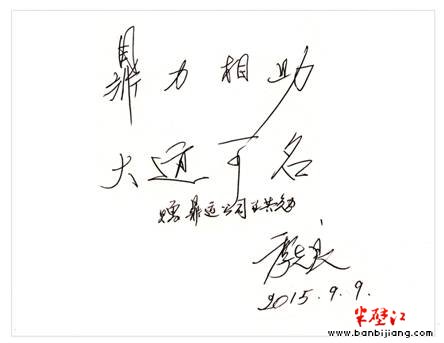 鼎力相助
大运可名
赠鼎运公司共勉
2015.9.9.
半壁江
www.banbijiang.com